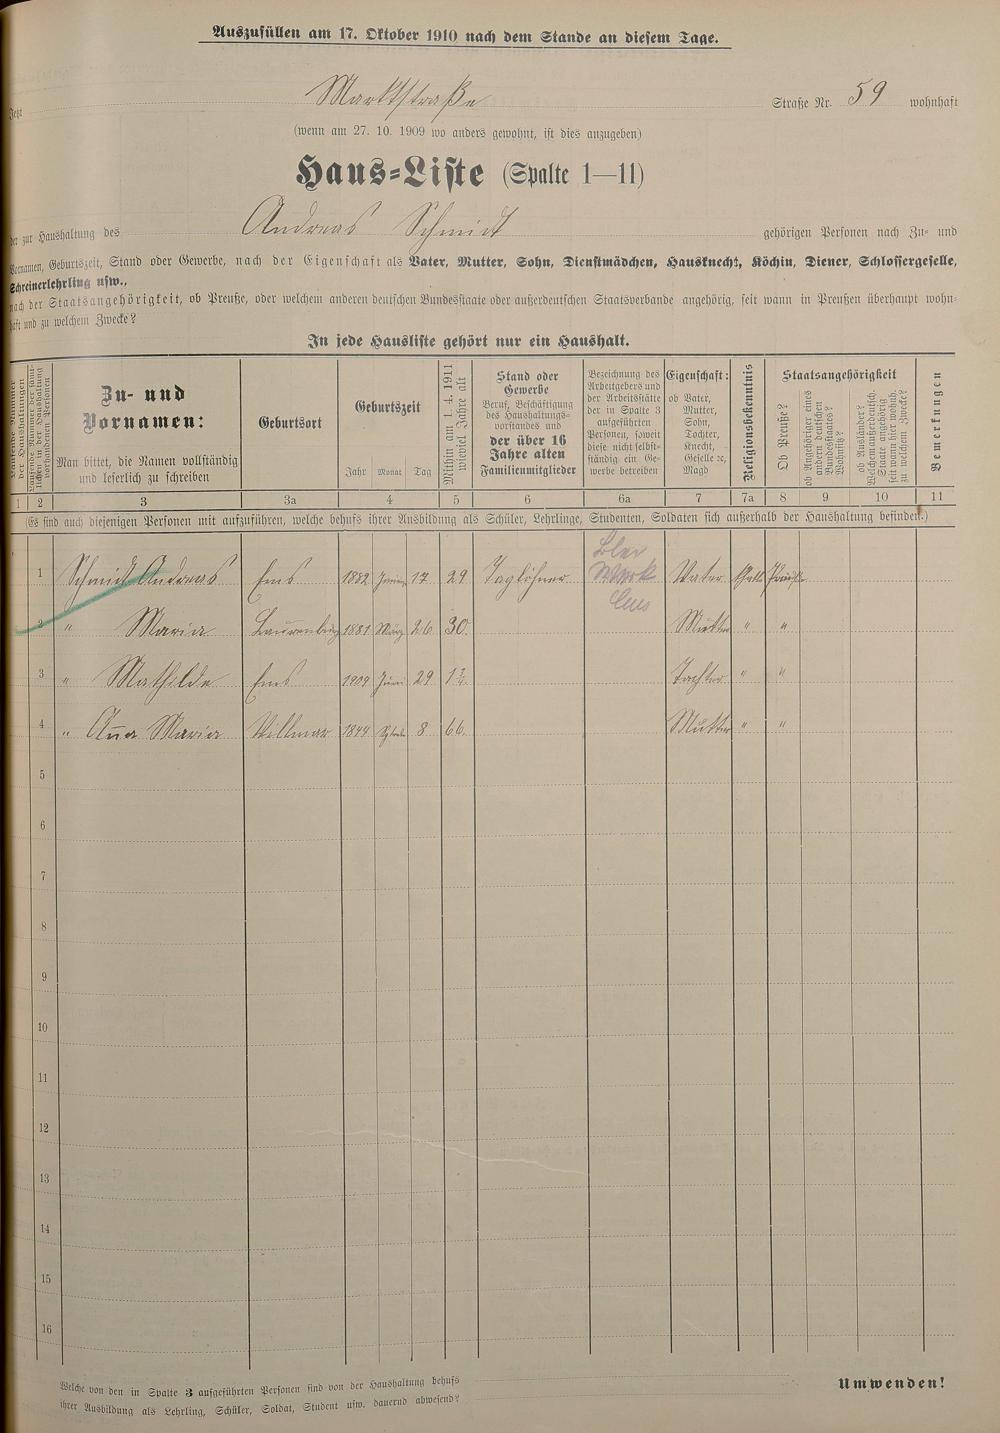 Auszufüllen am 17. Oktober 1910 nach dem Stande an diesem Tage.
Jetzt Marktstraße Straße Nr. 59 wohnhaft
(wenn am 27. 10. 1909 wo anders gewohnt, ist dies anzugeben)
Haus-Liste (Spalte 1—11)
der zur Haushaltung des Andreas Schmidt gehörigen Personen nach Zu- und
Vornamen, Geburtszeit, Stand oder Gewerbe, nach der Eigenschaft als Vater, Mutter, Sohn, Dienstmädchen, Hausknecht, Köchin, Diener, Schlossergeselle,
Schreinerlehrling usw.,
nach der Staatsangehörigkeit, ob Preuße, oder welchem anderen deutschen Bundesstaate oder außerdeutschen Staatsverbande angehörig, seit wann in Preußen überhaupt wohn-
haft und zu welchem Zwecke?
In jede Hausliste gehört nur ein Haushalt.
Laufende Nummer der Haushaltungen
Laufende Nummer der sämt-
lichen in der Haushaltung
vorhandenen Personen
Zu- und
Vornamen:
Man bittet, die Namen vollständig
und leserlich zu schreiben
Geburtsort
Geburtszeit
Jahr Monat Tag
Mithin am 1. 4. 1911
wieviel Jahre alt
Stand oder
Gewerbe
Beruf, Beschäftigung
des Haushaltungs-
vorstandes und
der über 16
Jahre alten
Familienmitglieder
Bezeichnung des
Arbeitgebers und
der Arbeitsstätte
der in Spalte 3
aufgeführten
Personen, soweit
diese nicht selbst-
ständig ein Ge-
werbe betreiben
Eigenschaft:
ob Vater,
Mutter,
Sohn,
Tochter,
Knecht,
Geselle 2c,
Magd
Religionsbekenntnis
Staatsangehörigkeit
Ob Preuße?
ob Angehöriger eines
andern deutschen
Bundesstaates?
Wohnsitz?
ob Ausländer?
Welchem außerdeutsch.
Staate angehörig
seit wann hier wohnh.
zu welchem Zwecke?
Bemerkungen
1 2 3 3a 4 5 6 6a 7 7a 8 9 10 11
(Es sind auch diejenigen Personen mit aufzuführen, welche behufs ihrer Ausbildung als Schüler, Lehrlinge, Studenten, Soldaten sich außerhalb der Haushaltung befinden.)
1 Schmidt Andreas Ems 1882 17 29 Taglöhner Blei Werk Ems Vater Kath. Preuße
2 " Maria Laurenburg 1881 März 26 30 Mutter " "
3 " Mathilde Ems 1909 Juni 29 1¾ Tochter " "
4 " Anna Maria Villmar 1844 8 66 Mutter " "
5
6
7
8
9
10
11
12
13
14
15
16
Welche von den in Spalte 3 aufgeführten Personen sind von der Haushaltung behufs
ihrer Ausbildung als Lehrling, Schüler, Soldat, Student usw. dauernd abwesend?
Umwenden!